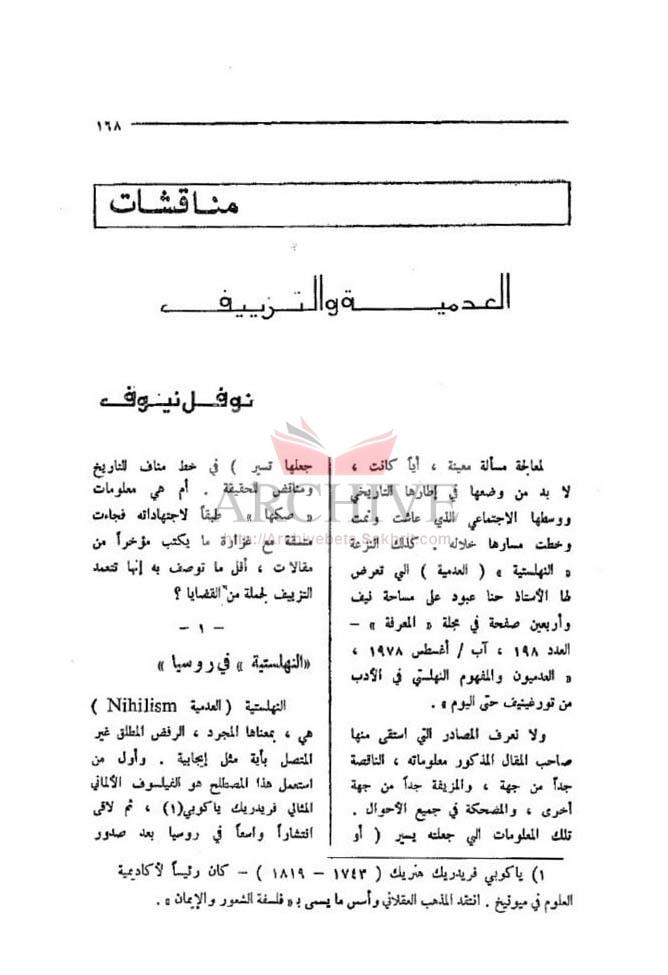 ١٦٨
مناقشات
العدمية والتزييف
نوفل نيوف
لمعالجة مسألة معينة ، أياً كانت ،
لا بد من وضعها في إطارها التاريخي
ووسطها الاجتماعي الذي عاشت ونمت
وخطت مسارها خلاله . كذلك النزعة
« النهلستية » ( العدمية ) التي تعرض
لها الأستاذ حنا عبود على مساحة نيف
وأربعين صفحة في مجلة « المعرفة » –
العدد ١٩٨ ، آب / أغسطس ١٩٧٨ ،
« العدميون والمفهوم النهلستي في الأدب
من تورغينيف حتى اليوم » .
ولا تعرف المصادر التي استقى منها
صاحب المقال المذكور معلوماته ، الناقصة
جداً من جهة ، والمزيفة جداً من جهة
أخرى ، والمضحكة في جميع الأحوال .
تلك المعلومات التي جعلته يسير ( أو
جعلها تسير ) في خط مناف للتاريخ
ومناقض للحقيقة . أم هي معلومات
« صكها » طبقاً لاجتهاداته فجاءت
متسقة مع غزارة ما يكتب مؤخراً من
مقالات ، أقل ما توصف به إنها تتعمد
التزييف لجملة من القضايا ؟
– ١ –
«النهلستية » في روسيا »
النهلستية ( العدمية Nihilism )
هي ، بمعناها المجرد ، الرفض المطلق غير
المتصل بأية مثل إيجابية . وأول من
استعمل هذا المصطلح هو الفيلسوف الألماني
المثالي فريدريك ياكوبي(١) ، ثم لاقى
انتشاراً واسعاً في روسيا بعد صدور
١) ياكوبي فريدريك هنريك ( ١٧٤٣ – ١٨١٩ ) – كان رئيساً لأكاديمية
العلوم في ميونيخ . انتقد المذهب العقلاني وأسس ما يسمى بـ « فلسفة الشعور والإيمان » .
ARCHIVE
http://Archivebeta.Sakhrit.com